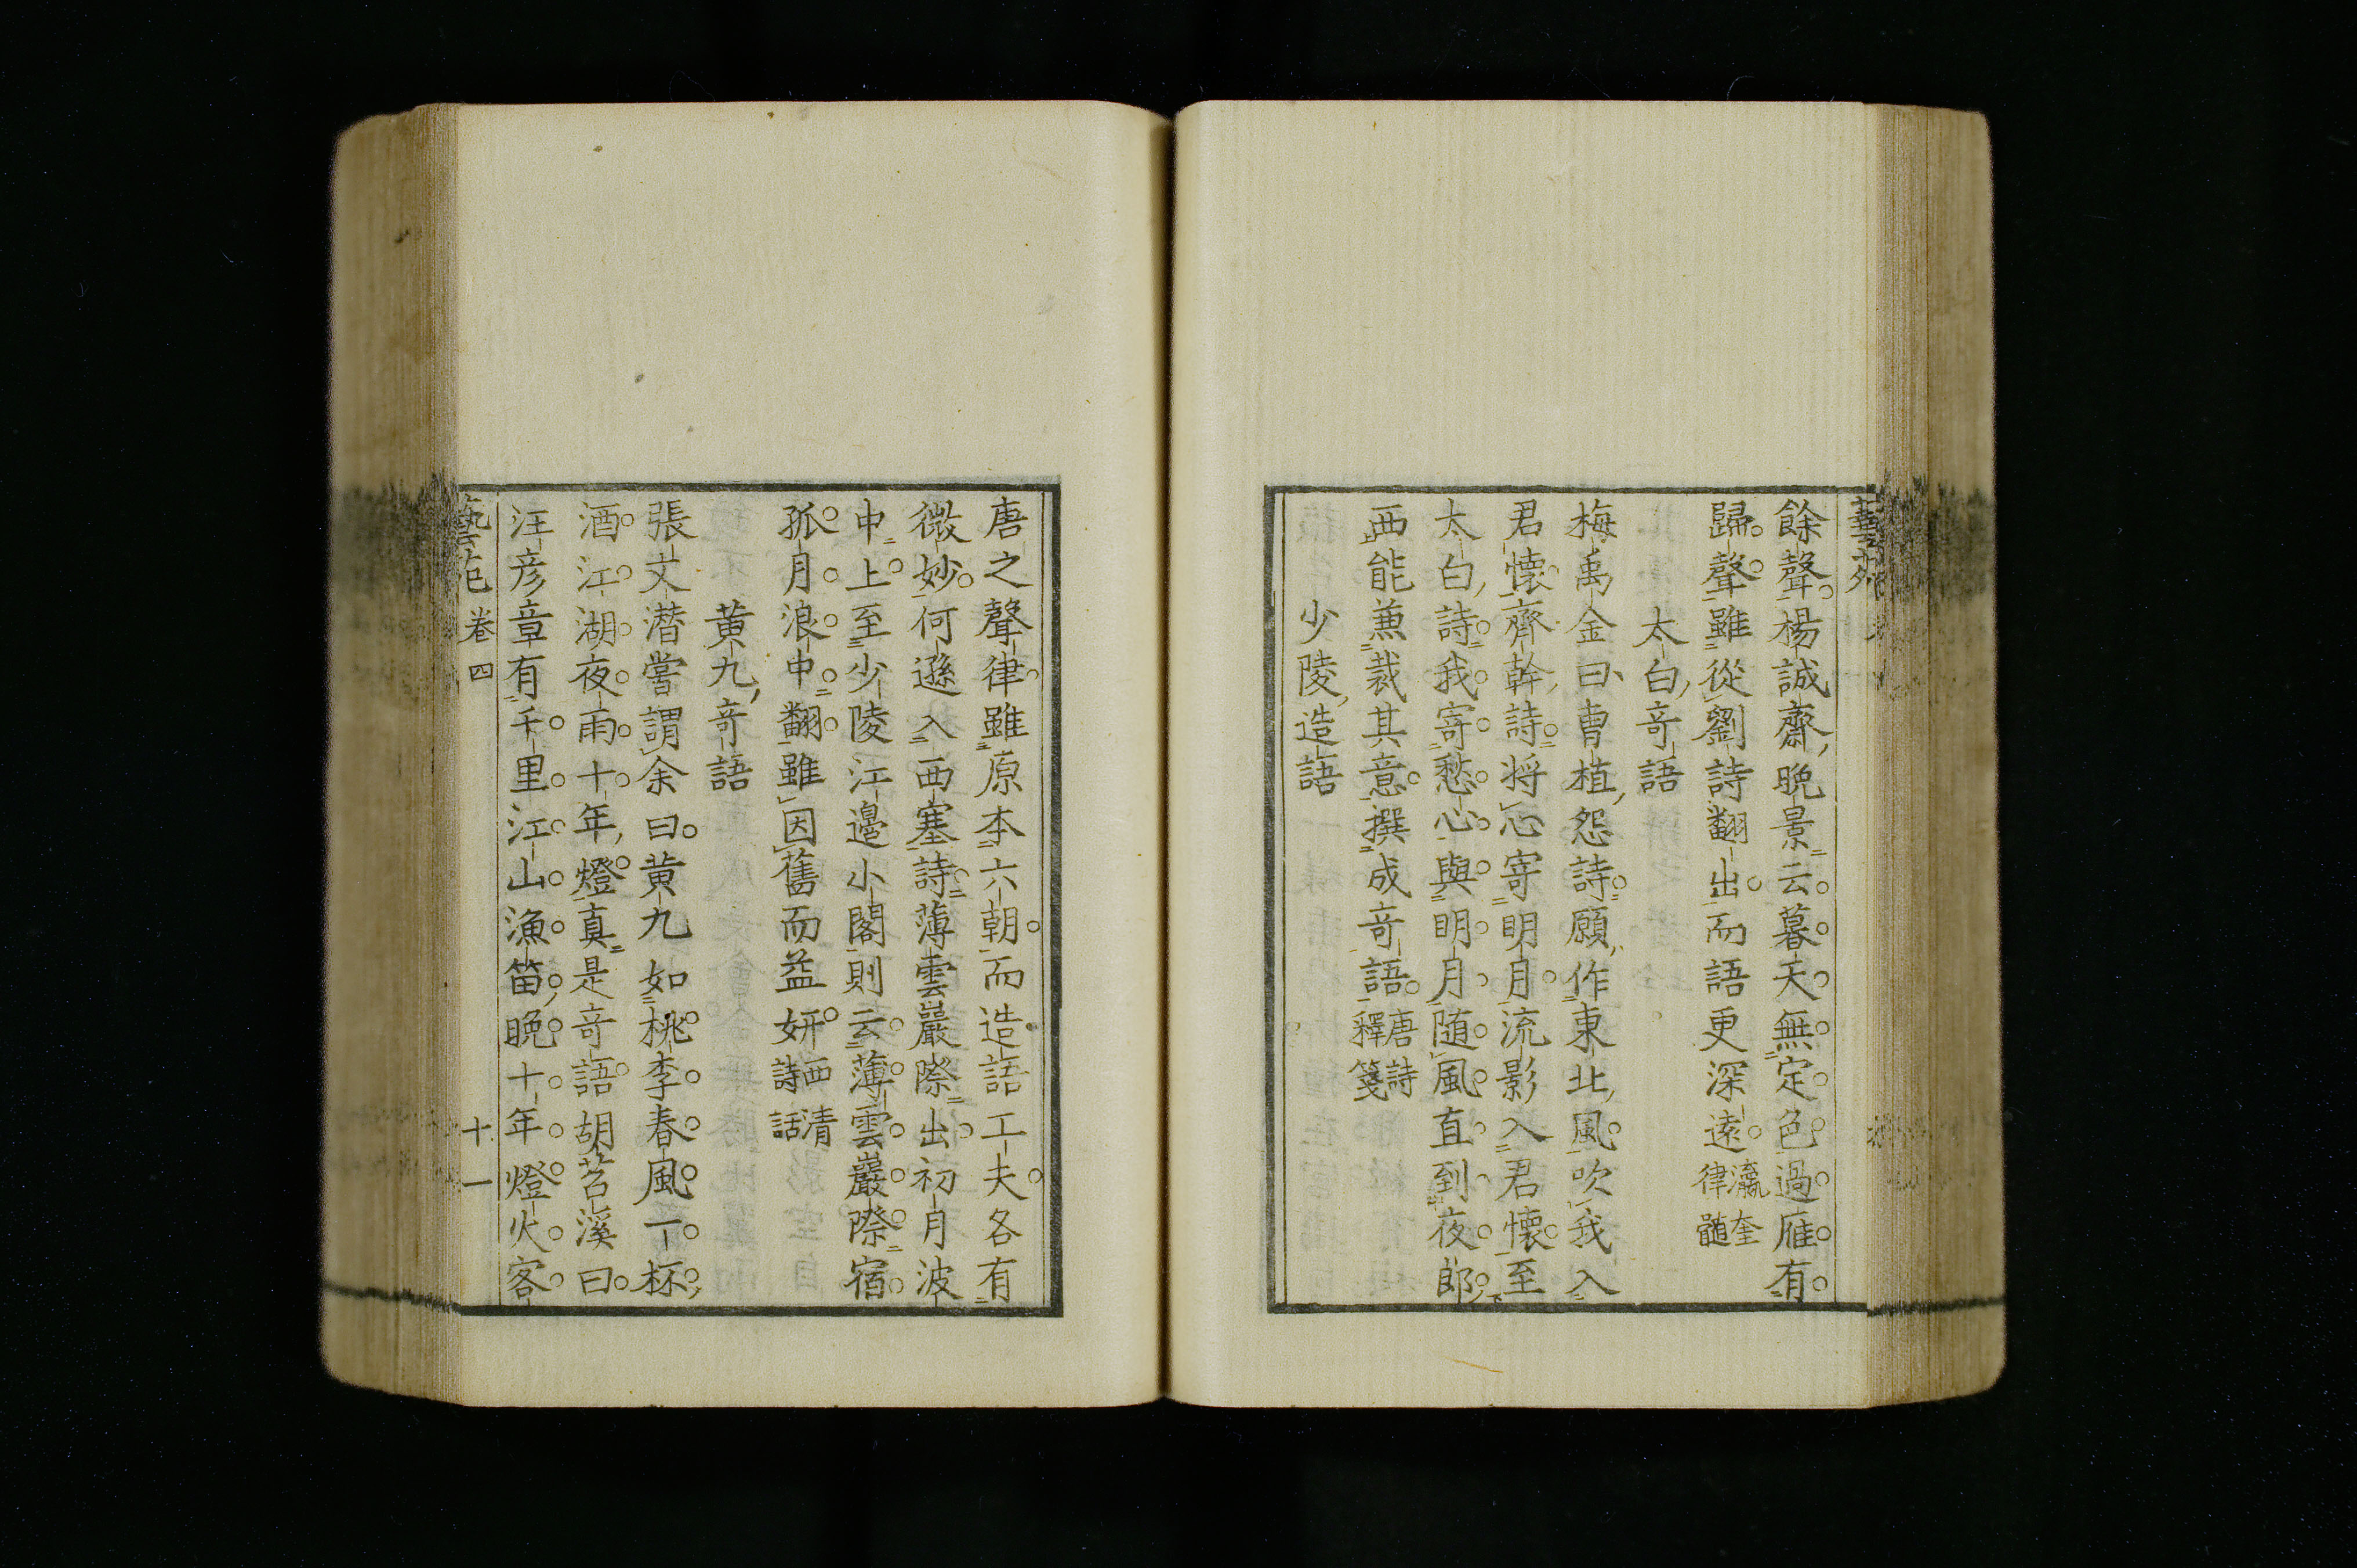 餘聲楊誠齋晩景云暮天無定色過雁有
歸聲雖從劉詩翻出而語更深遠瀛奎律髓
太白奇語
梅禹金曰曹植怨詩願作東北風吹我入
君懷齊幹詩將心寄明月流影入君懷至
太白詩我寄愁心與明月随風直到夜郎
西能兼裁其意撰成奇語唐詩釋箋
少陵造語
唐之聲律雖原本六朝而造語工夫各有
微妙何遜入西塞詩薄雲巖際出初月波
中上至少陵江邊小閣則云薄雲巖際宿
孤月浪中翻雖因舊而益妍西清詩話
黄九奇語
張文潜嘗謂余曰黄九如桃李春風一杯
酒江湖夜雨十年燈真是奇語胡苕溪曰
汪彦章有千里江山漁笛晩十年燈火客
藝苑 卷四 十一